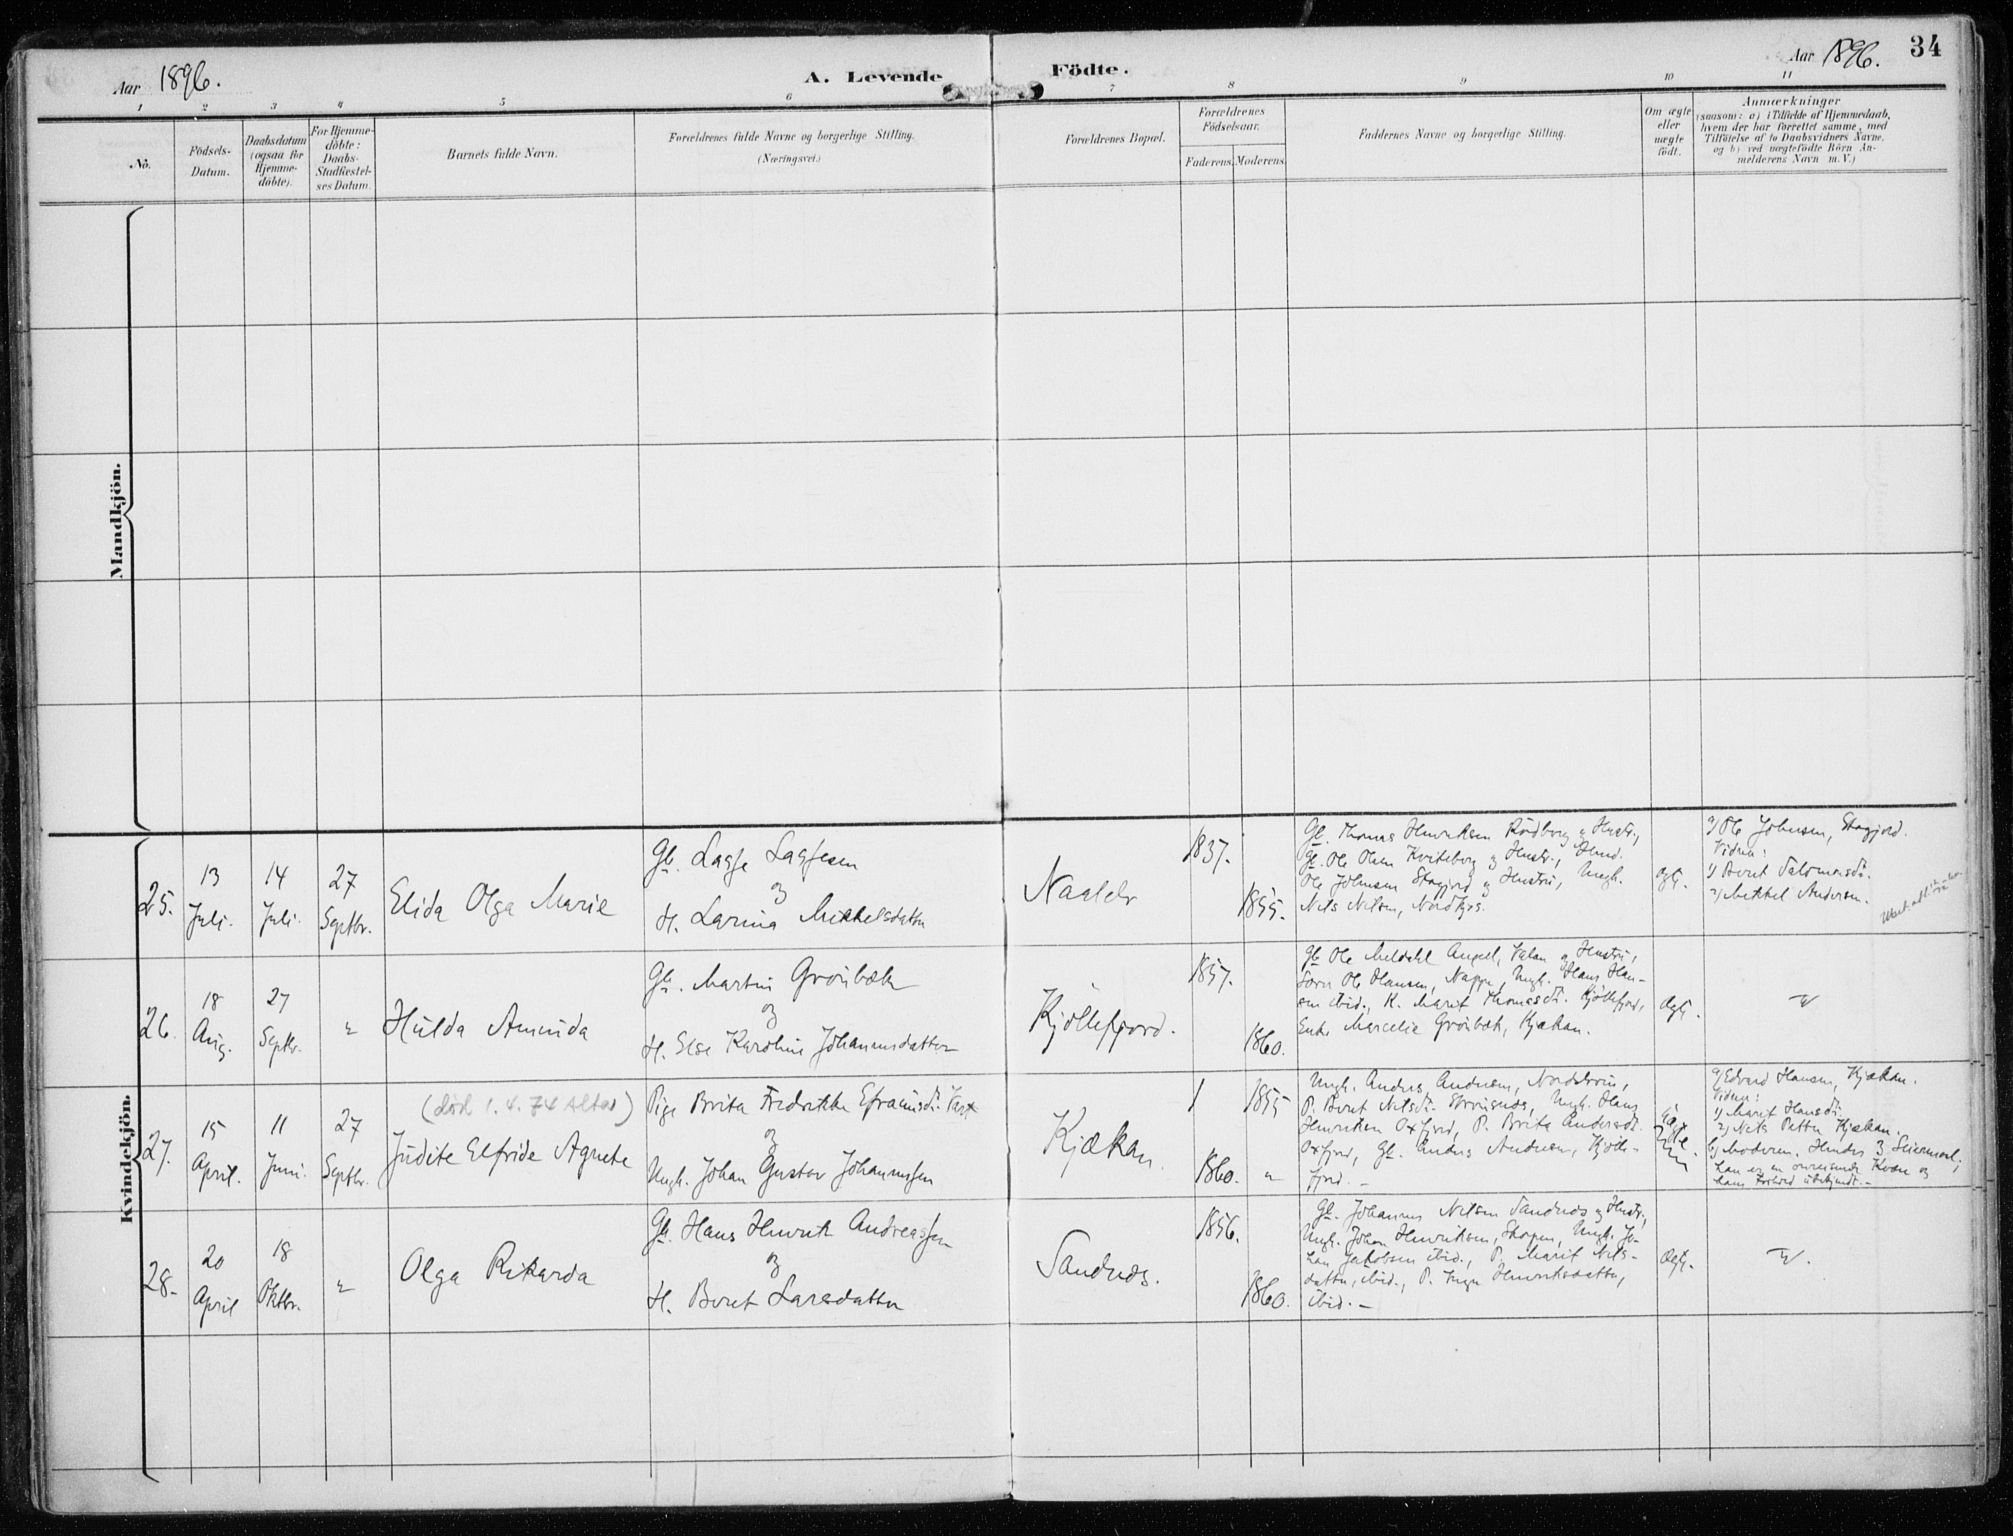 Aar 1896.
A. Levende Födte.
Aar 1896.
34
1 2 3 4 5 6 7 8 9 10 11
No.
Födsels-
Datum.
Daabsdatum
(ogsaa för
Hjemme-
döbte).
For Hjemme-
döbte:
Daabs-
Stadfæstel-
ses Datum.
Barnets fulde Navn.
Forældrenes fulde Navne og borgerlige Stilling.
(Næringsvei.)
Forældrenes Bopæl.
Forældrenes
Födselsaar.
Faderens. Moderens.
Faddernes Navne og borgerlige Stilling.
Om ægte
eller
uægte
födt.
Anmærkninger
(saasom: a) i Tilfælde af Hjemmedaab,
hvem der har forrettet samme, med
Tilföielse af to Daabsvidners Navne.
og b) ved uægtefödte Börn An-
melderens Navn m. V.)
Mandkjön.
Kvindekjön.
25.
13
Juli.
14
Juli.
27
Septbr.
Elida Olga Marie
Gb. Lasse Lassesen
og
H. Larina Mikkelsdatter
1837.
1855.
Gb. Thomas Henriksen og Hustr.,
Gb. Ole Olsen Kviteberg og Hustr.,
Ole Johnsen Stajord og Hustru, Ungk.
Nils Nilsen,
Ægt.
a) Ole Johnsen, Stajord.
Vidner:
1) Berit Salomonsdt.
2) Mikkel Andersen.
26.
18
Aug.
27
Septbr.
"
Hulda Aminda
Gb. Martin Grönbæk
og
H. Else Karoline Johannesdatter
Kjöllefjord.
1857.
1860.
Gb. Ole Meldahl og Hustru,
Ole Hansen, Ungk. Hans Han-
sen ibid., K. Marit Thomasdt. Kjöllefjord,
Enke Marcelie Grönbæk, Kjækan.
Ægt.
"
27.
15
April.
11
Juni.
27
Septbr.
(död 1.4.74 Alta)
Judite Elfride Agnete
Pige Brita Fredrikke Efraimsdt.
og
Ungk. Johan Gustav Johannessen
Kjækan.
1855
1860. "
Ungk. Anders Andersen,
P. Berit Nilsdt. Ungk. Hans
Henriksen Oxfjord, P. Brita Andersdt.
Oxfjord, Gb. Anders Andersen, Kjölle-
fjord. –
Uægte
a) Edvard Hansen, Kjækan.
Vidner:
1) Marit Hansdt.
2) Nils Petter Kjækan.
b) Moderen. Hendes 3. Leiermaal;
han er en omreisende Kvæn og
hans Forhold ubekjendt. –
28.
20
April
18
Oktbr.
"
Olga Rikarda
Gb. Hans Henrik Andreassen
og
H. Berit Larsdatter
Sandnes.
1856.
1860.
Gb. Johannes Nilsen Sandnes og Hustr.,
Ungk. Johan Henriksen, Ungk. Jo-
han Jakobsen ibid., P. Marit Nils-
datter, ibid., P. Inga Henriksdatter,
ibid. –
Ægt.
"